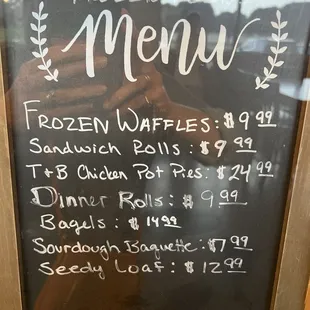 Menu
FROZEN WAFFLES: $9.99
Sandwich Rolls: $9.99
T+B Chicken Pot Pies: $24.99
Dinner Rolls: $9.99
Bagels: $14.99
Sourdough Baguette: $7.99
Seedy Loaf: $12.99